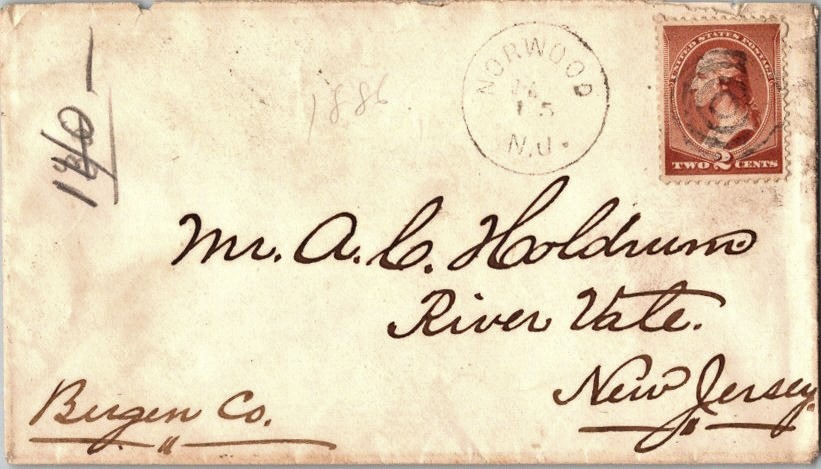 NORWOOD
15
N.J.
1886
UNITED STATES POSTAGE
TWO 2 CENTS
Mr. A. C. Holdrum
River Vale.
New Jersey
Bergen Co.